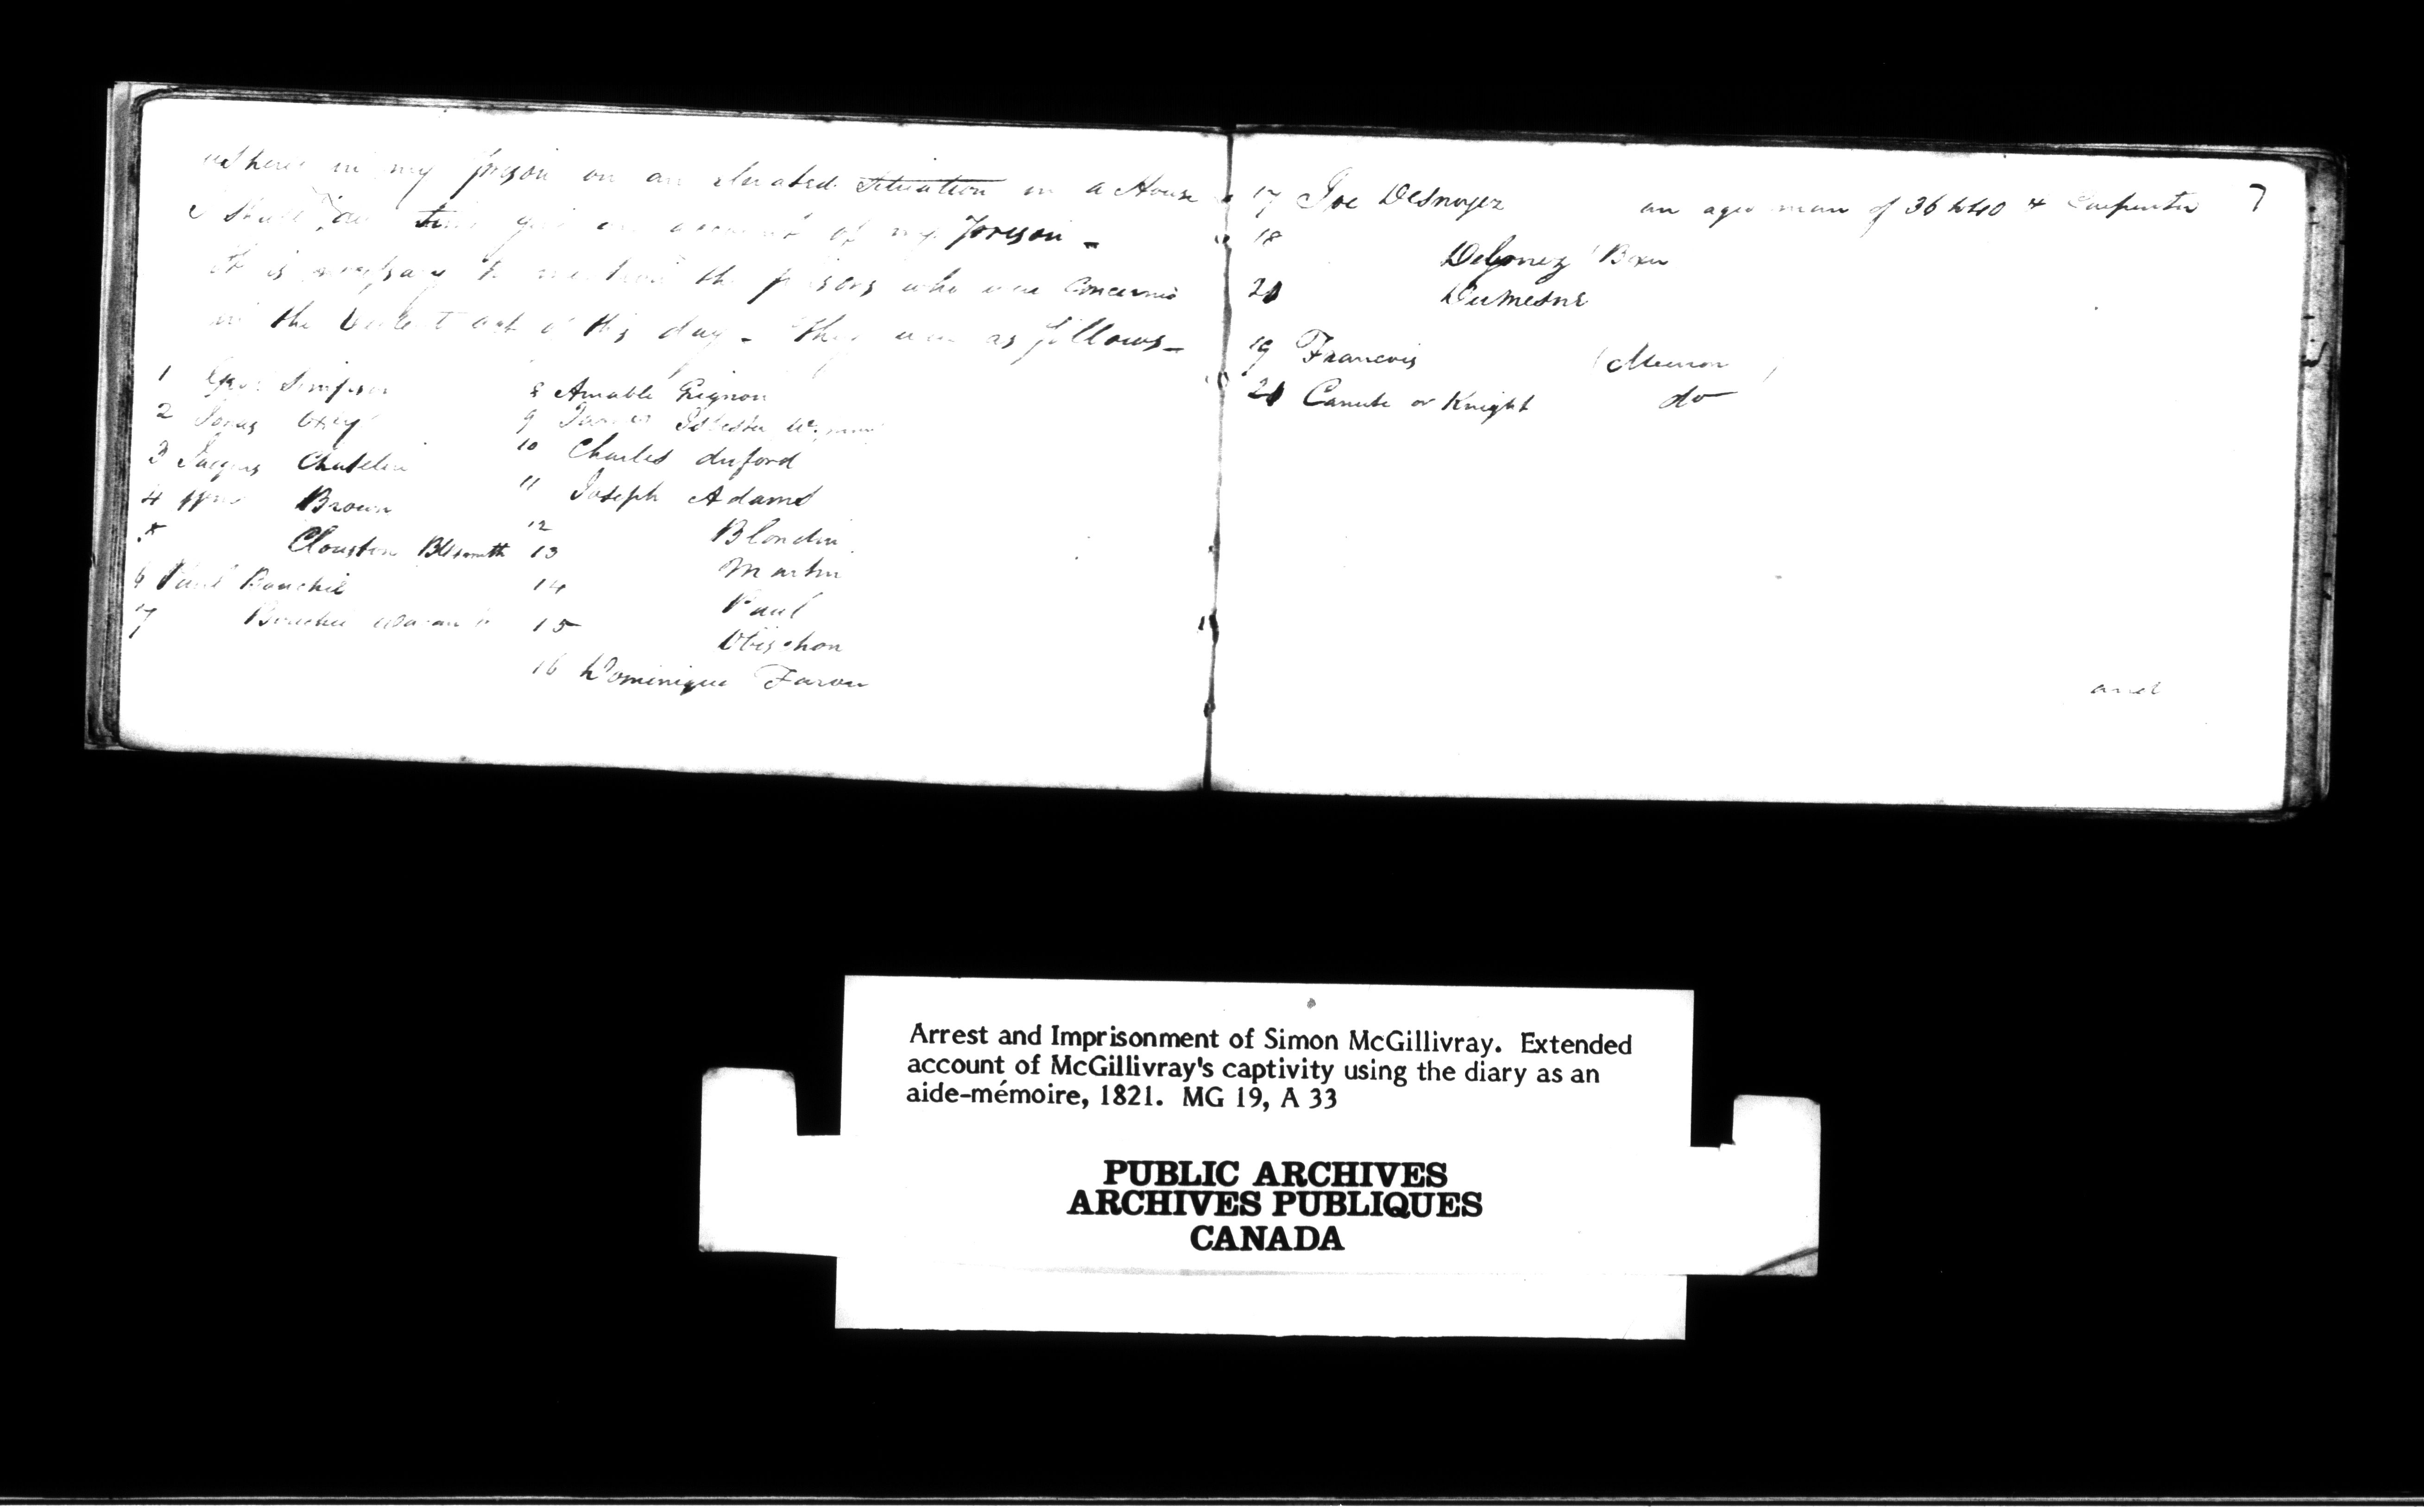 where in my prison on an elevated situation in a House
I shall give an account of my prison -
It is necessary to mention the persons who were concerned
in the violent act of this day - They were as follows -
1 Geo. Simpson
2 Jonas Oxley
3 Jacques Chatelin
4 Wm Brown
Clouston Blksmith
6 Paul Bouchie
7 Bouchie
8 Amable Grignon
9 James Isbester
10 Charles duford
11 Joseph Adams
12 Blondin
13 Martin
14 Paul
15
16 Dominique Farou
17 Joe Desnoyez an aged man of 36 to 40 & Carpenter 7
18 Bow
20
19 Francois (Meuron)
21 Canute or Knight do
and
Arrest and Imprisonment of Simon McGillivray. Extended
account of McGillivray's captivity using the diary as an
aide-mémoire, 1821. MG 19, A 33
PUBLIC ARCHIVES
ARCHIVES PUBLIQUES
CANADA